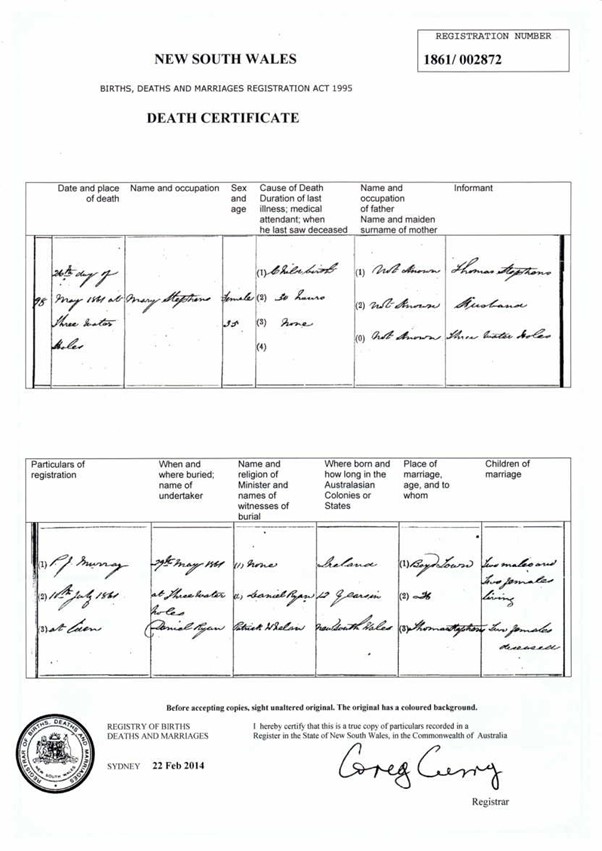 REGISTRATION NUMBER
1861/ 002872
NEW SOUTH WALES
BIRTHS, DEATHS AND MARRIAGES REGISTRATION ACT 1995
DEATH CERTIFICATE
Date and place
of death
Name and occupation
Sex
and
age
Cause of Death
Duration of last
illness; medical
attendant; when
he last saw deceased
Name and
occupation
of father
Name and maiden
surname of mother
Informant
98
26th day of
May 1861 at
Three Water
Holes
Mary Stephens
Female
35
(1) Childbirth
(2) 30 hours
(3) None
(4)
(1) Not Known
(2) Not Known
(0) Not Known
Thomas Stephens
Husband
Three Water Holes
Particulars of
registration
When and
where buried;
name of
undertaker
Name and
religion of
Minister and
names of
witnesses of
burial
Where born and
how long in the
Australasian
Colonies or
States
Place of
marriage,
age, and to
whom
Children of
marriage
(1) P.J. Murray
(2) 11th July 1861
(3) at Eden
29th May 1861
at Three Water
Holes
Daniel Ryan
(1) None
(1) Daniel Ryan
Patrick Whelan
Ireland
12 Years in
New South Wales
(1) Boyd Town
(2) 26
(3) Thomas Stephens
Two males and
Two females
living
Two females
deceased
Before accepting copies, sight unaltered original. The original has a coloured background.
REGISTRAR OF BIRTHS, DEATHS AND MARRIAGES
NEW SOUTH WALES
REGISTRY OF BIRTHS
DEATHS AND MARRIAGES
SYDNEY 22 Feb 2014
I hereby certify that this is a true copy of particulars recorded in a
Register in the State of New South Wales, in the Commonwealth of Australia
Greg Curry
Registrar